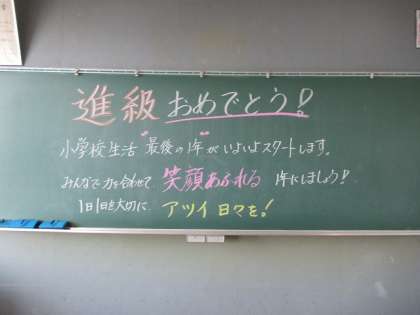 進級おめでとう!
小学校生活"最後の1年"がいよいよスタートします。
みんなで力を合わせて、笑顔あふれる 1年にしましょう!
1日1日を大切に、アツイ日々を!